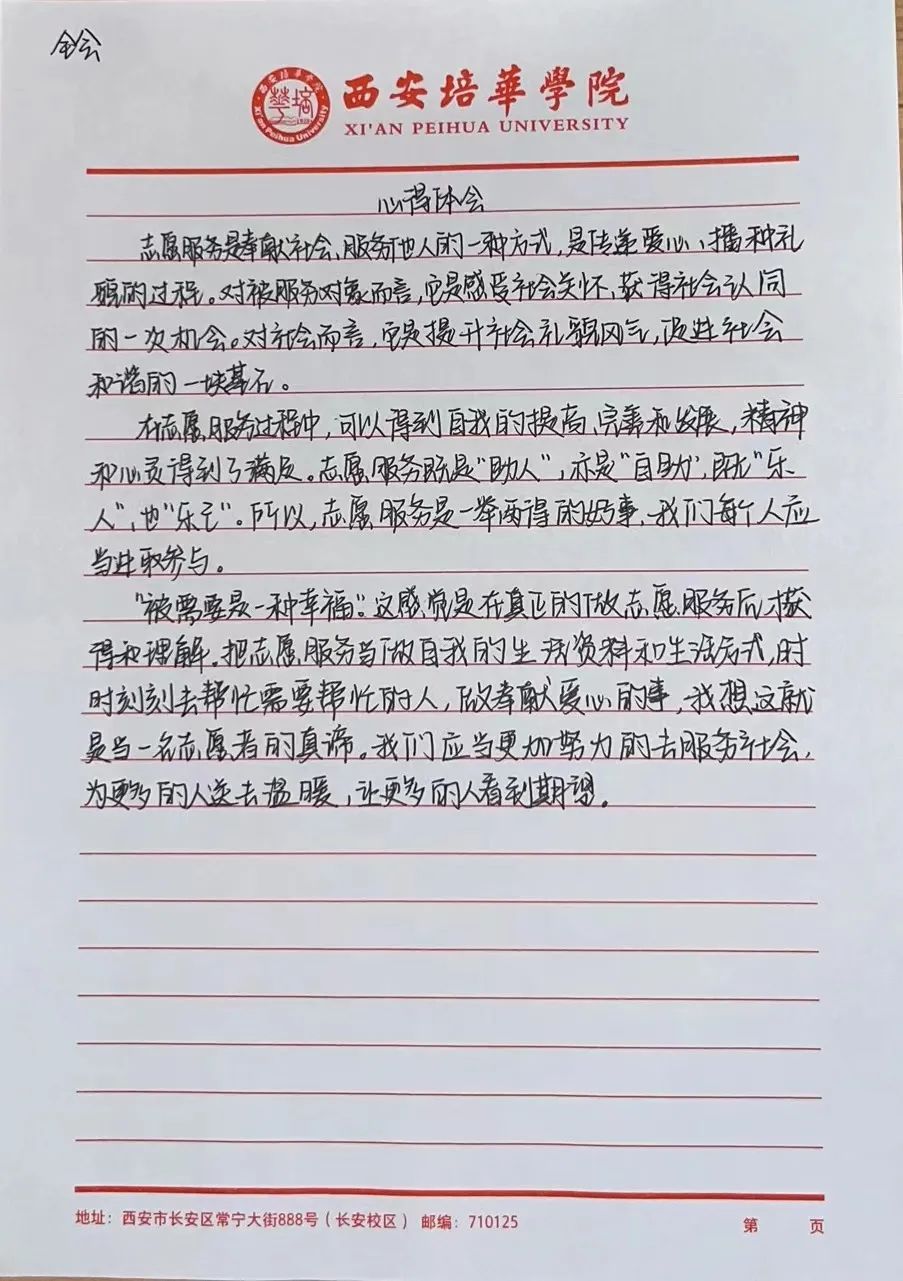 全会
西安培華學院
XI'AN PEIHUA UNIVERSITY
西安培華學院
Xi'an Peihua University
心得体会
志愿服务是奉献社会、服务他人的一种方式，是传递爱心、播种礼
貌的过程。对被服务对象而言，它是感受社会关怀、获得社会认同
的一次机会。对社会而言，它是提升社会礼貌风气，促进社会
和谐的一块基石。
在志愿服务过程中，可以得到自我的提高、完善和发展，精神
和心灵得到了满足。志愿服务既是"助人"，亦是"自助"，既"乐
人"，也"乐己"。所以，志愿服务是一举两得的好事，我们每个人应
当进取参与。
"被需要是一种幸福"。这感觉是在真正的做志愿服务后才获
得和理解。把志愿服务当做自我的生活资料和生活方式，时
时刻刻去帮忙需要帮忙的人，做奉献爱心的事，我想这就
是当一名志愿者的真谛。我们应当更加努力的去服务社会，
为更多的人送去温暖，让更多的人看到期望。
地址：西安市长安区常宁大街888号（长安校区） 邮编：710125
第 页